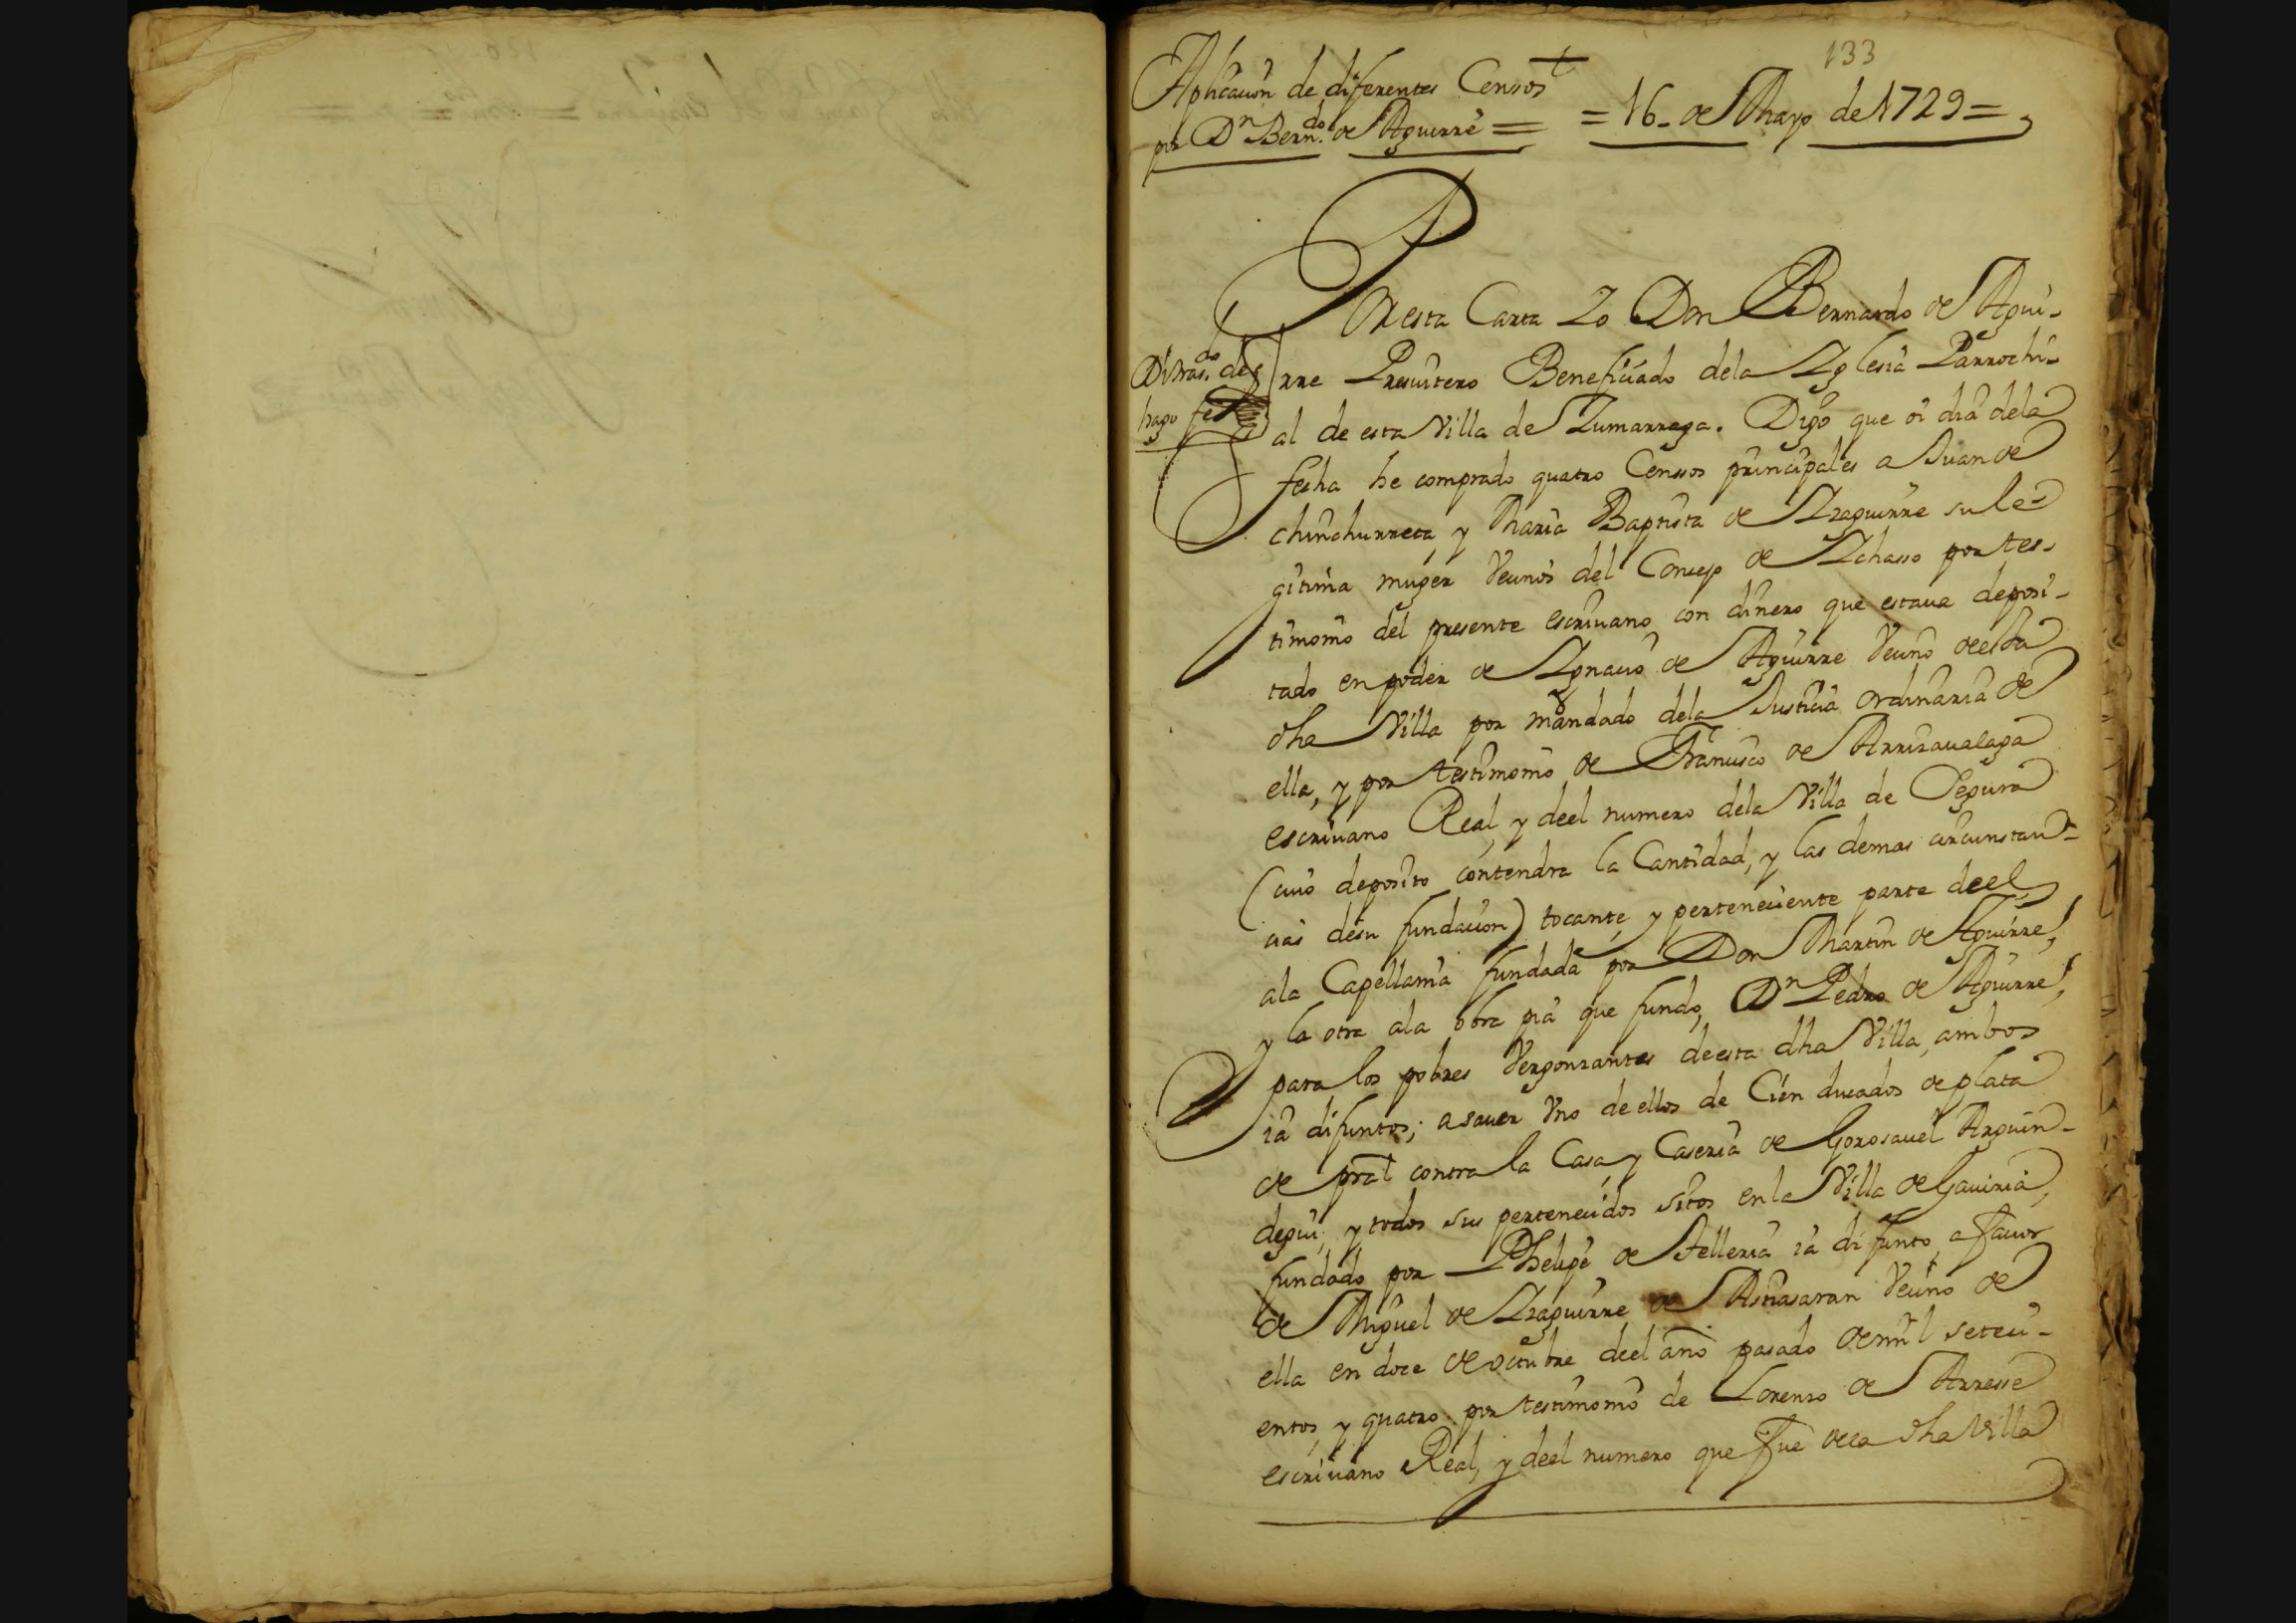 133
Aplicacion de diferentes Censos
por Dn Berndo de Aguirre = = 16 de Mayo de 1729 =
Por esta Carta Yo Don Bernardo de Agui-
rre Presuitero Beneficiado dela Yglesia Parrochi-
al de esta Villa de Zumarraga. Digo que oi dia dela
fecha he comprado quatro Censos principales a Juan de
chinchurreta y Maria Baptista de Yzaguirre su le-
gitima muger Vecinos del Concejo de Ychasso por tes-
timonio del presente escriuano con dinero que estaua deposi-
tado en poder de Ygnacio de Aguirre Vecino de esta
dha Villa por mandado dela Justicia ordinaria de
ella, y por testimonio de Francisco de Arrizaualaga
escriuano Real, y deel numero dela Villa de Segura
(cuio deposito contendra la Cantidad, y las demas circunstan-
cias desu fundacion) tocante, y perteneciente parte deel,
ala Capellania fundada por Don Martin de Aguirre,
y la otra ala obra pia que fundo, Dn Pedro de Aguirre,
para los pobres Vergonzantes de esta dha Villa, ambos
ia difuntos; asauer Vno de ellos de Cien ducados de plata
de pral contra la Casa, y Caseria de Gorosauel Arguin-
degui, y todos sus pertenecidos sitos en la Villa de Gauiria,
fundado por Phelipe de Telleria ia difunto, a fauor
de Miguel de Yzaguirre de Astiasaran Vecino de
ella en doce de octubre deel año pasado de mil seteci-
entos, y quatro por testimonio de Lorenzo de Arresse
escriuano Real, y deel numero que fue de la dha Villa
hago fee